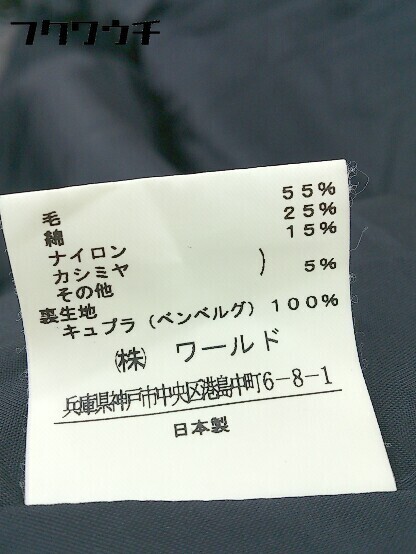 フクワウチ
毛 55%
綿 25%
ナイロン 15%
カシミヤ
その他 ) 5%
裏生地
キュプラ（ベンベルグ） 100%
㈱ ワールド
兵庫県神戸市中央区港島中町6-8-1
日本製